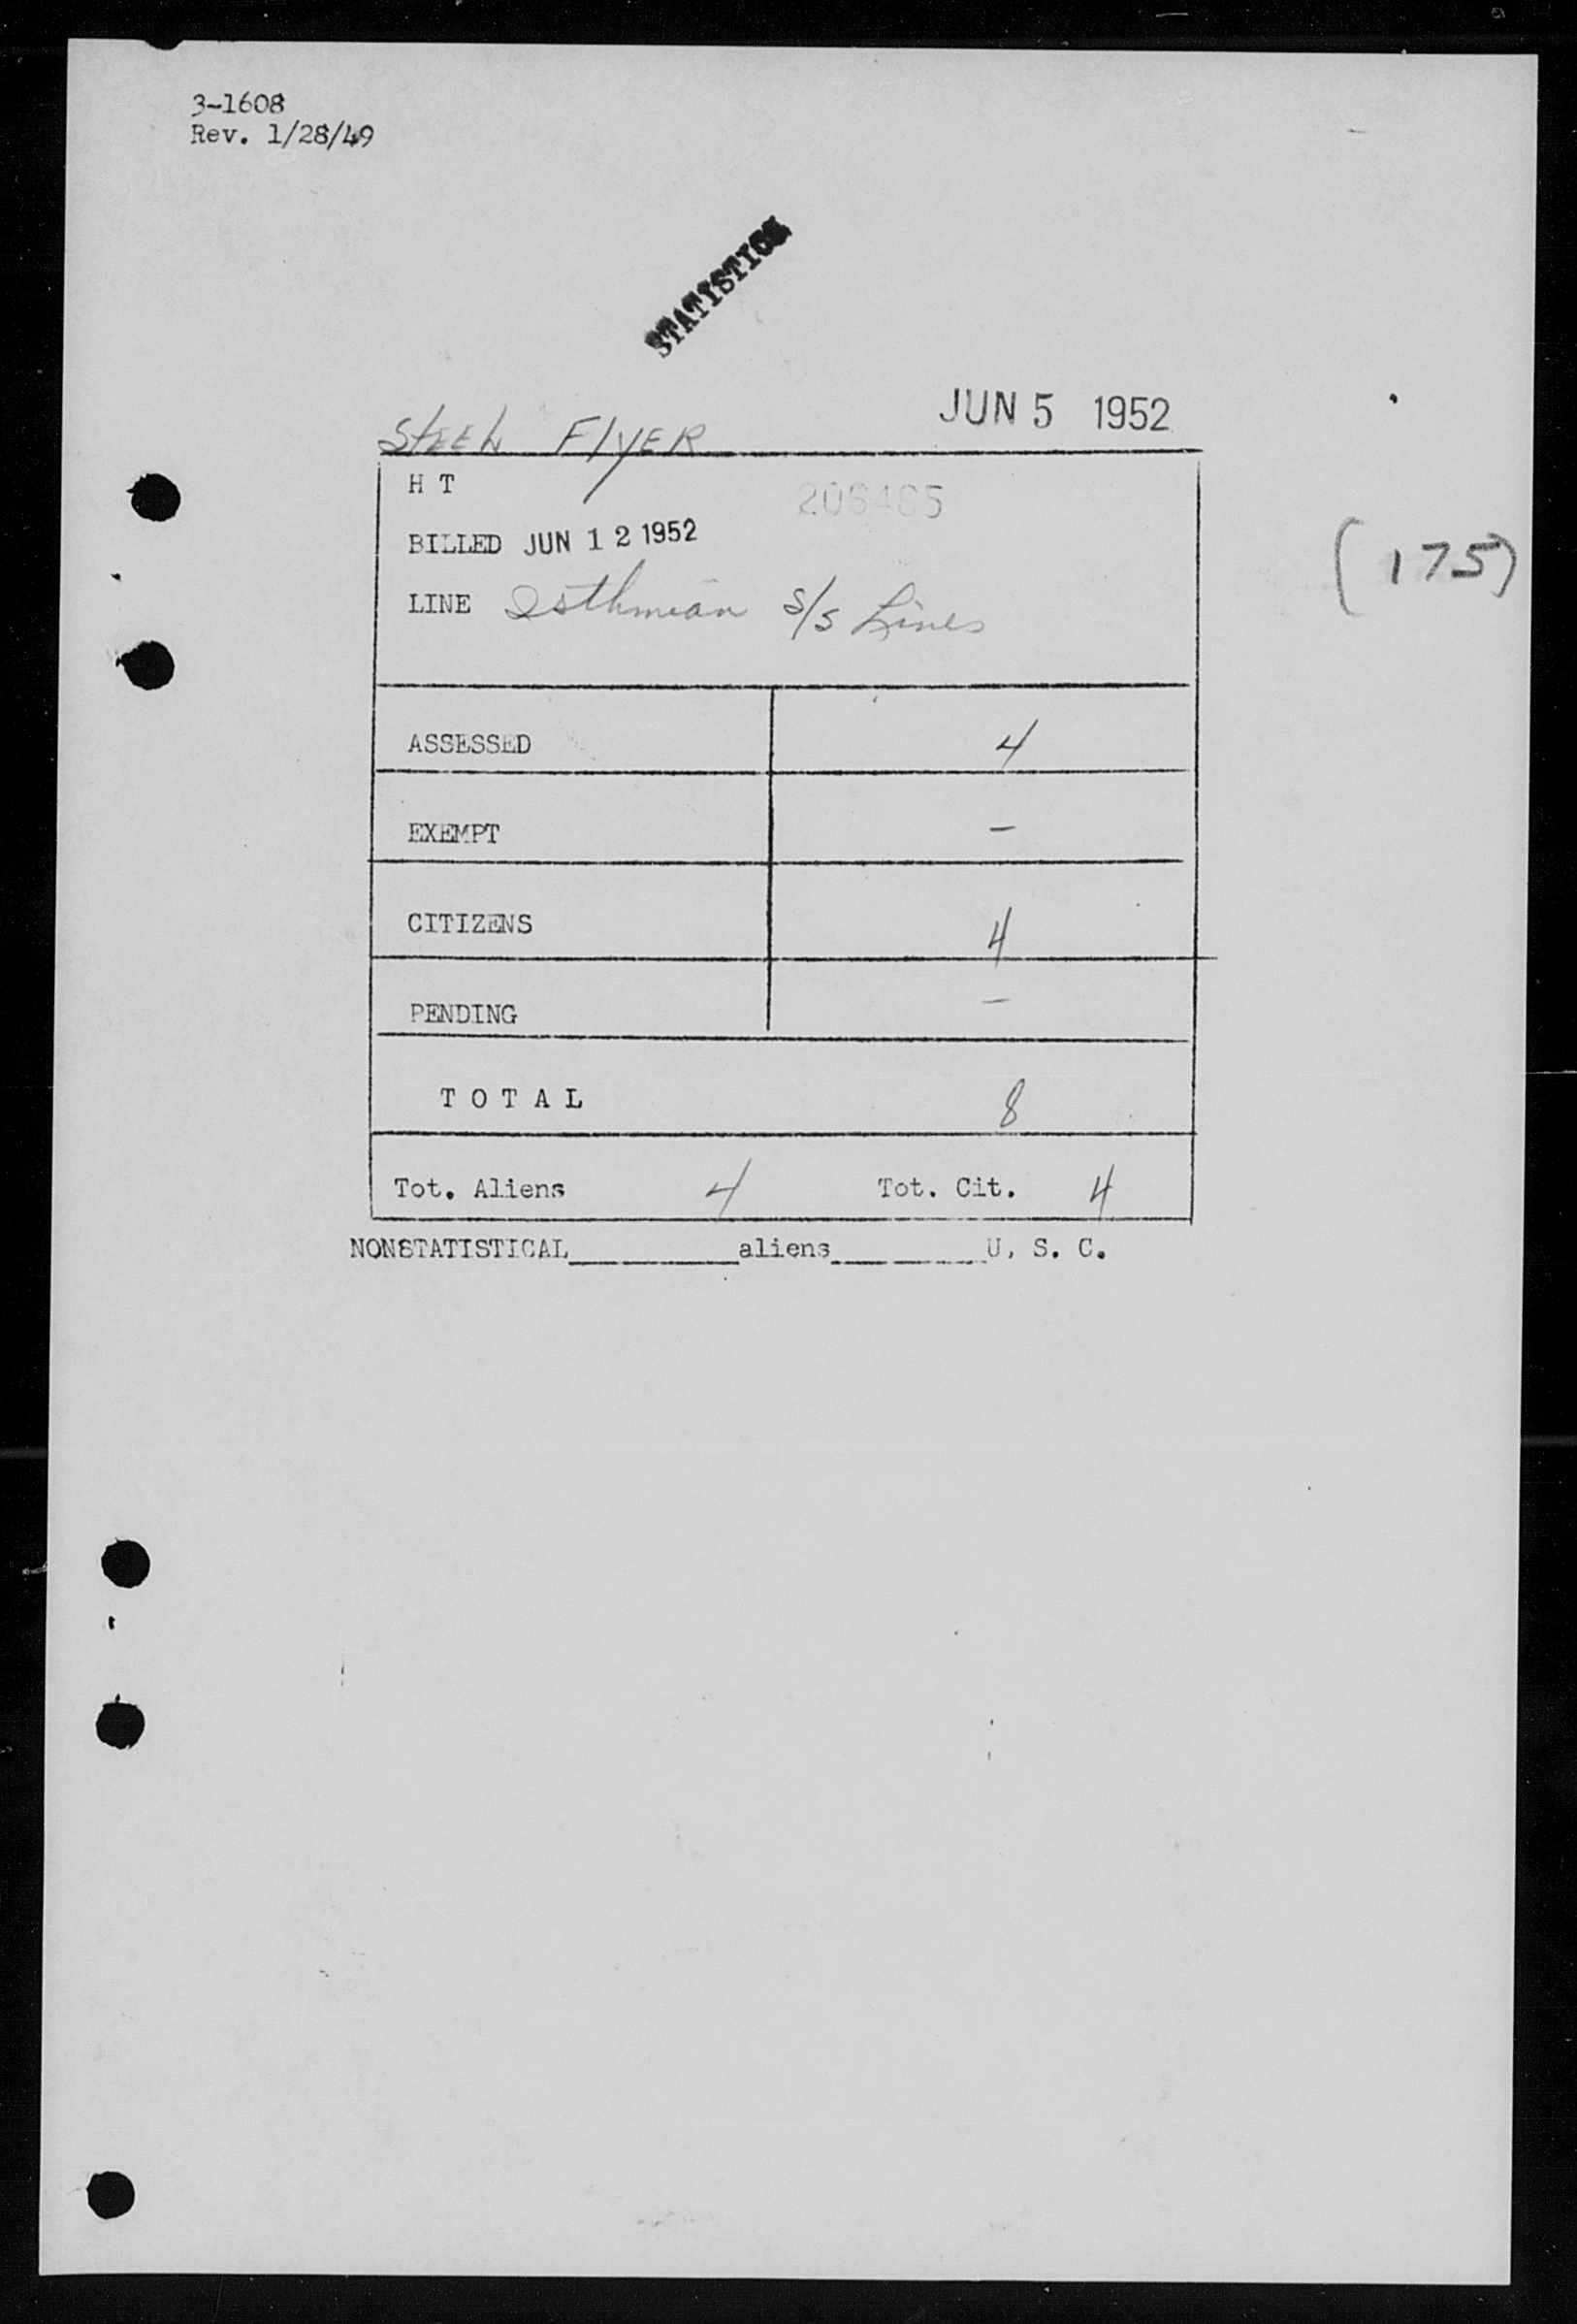 3-1608
Rev. 1/28/49
STATISTICS
STEEL FLYER JUN 5 1952
H T
BILLED JUN 12 1952
LINE Isthmian S/S Lines
(175)
ASSESSED 4
EXEMPT -
CITIZENS 4
PENDING -
T O T A L 8
Tot. Aliens 4 Tot. Cit. 4
NONSTATISTICAL__________aliens__________U. S. C.